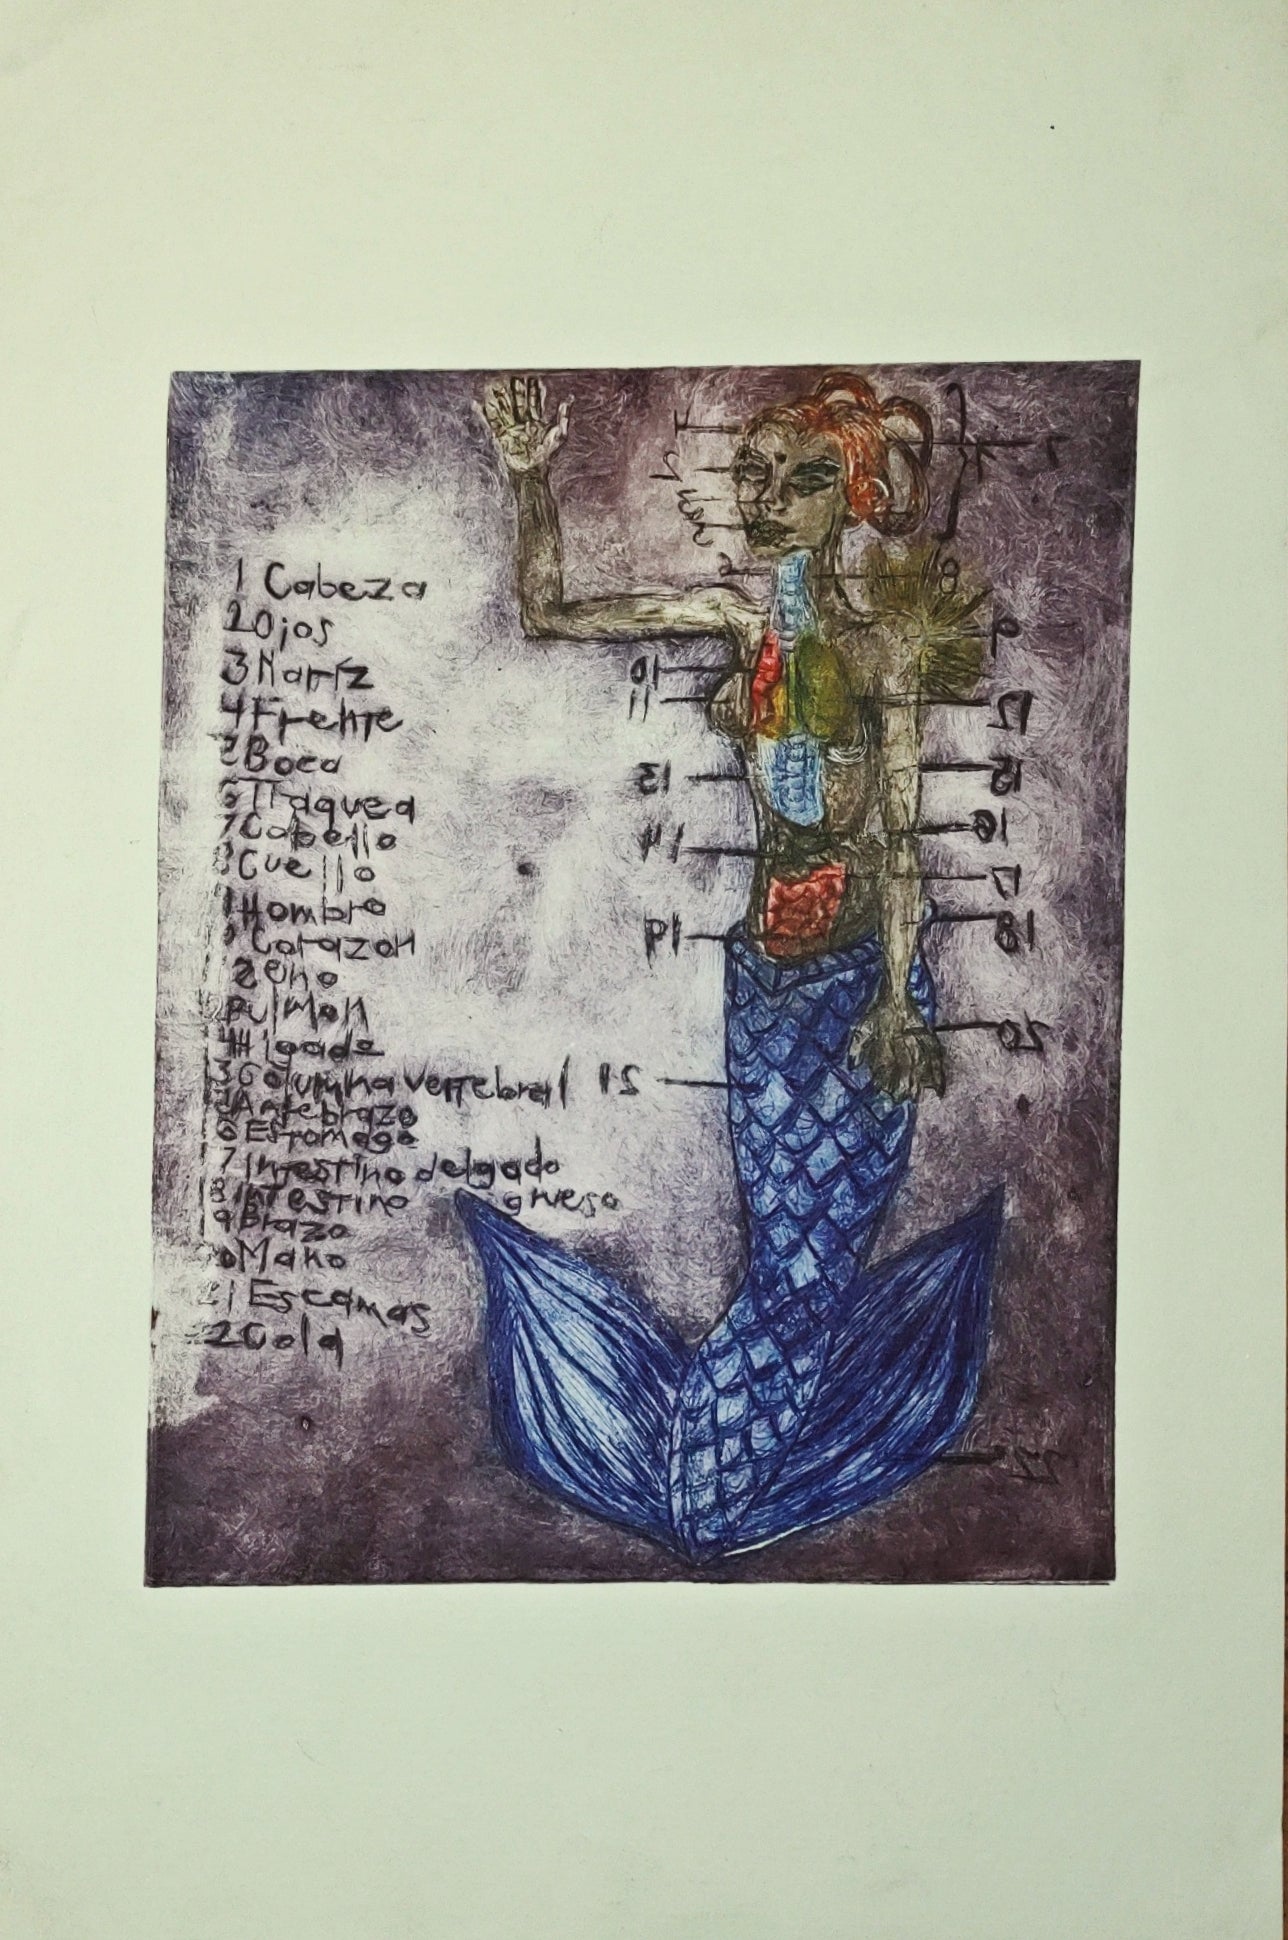 1 Cabeza
2 Ojos
3 Naríz
4 Frente
Boca
6 Traquea
7 Cabello
8 Cuello
Hombro
Corazon
Zeno
Pulmon
Higado
3 Columna vertebral
Antebrazo
6 Estomago
7 Intestino delgado
8 Intestino grueso
9 Brazo
0 Mano
21 Escamas
2 Cola
4
7
2
8
9
10
11
12
13
15
16
14
17
18
19
20
21
22